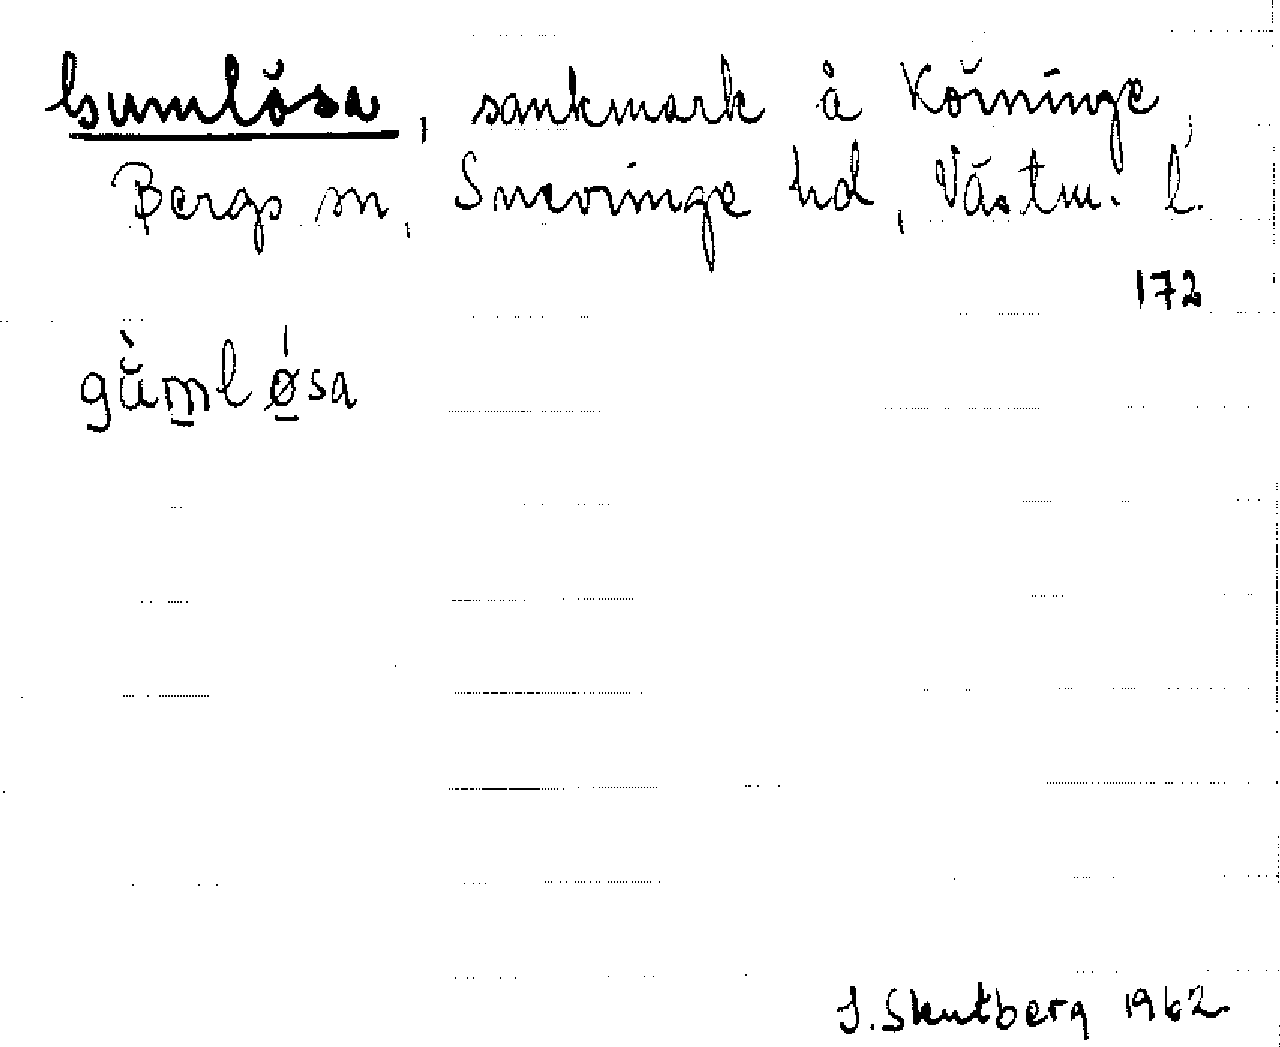 Gumlösa, sankmark å Körninge,
Bergs sn, Snevringe hd, Västm. l.
172
gùmløsa
S. Skutberg 1962